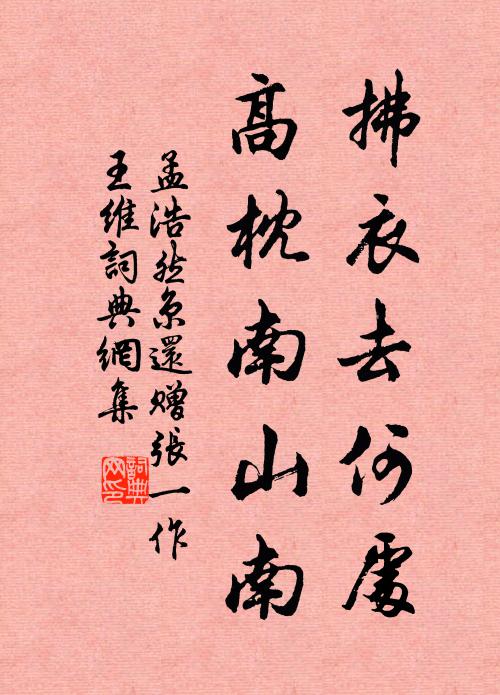 拂衣去何處
高枕南山南
孟浩然京還贈張一作
王維詞典網集
詞典网印